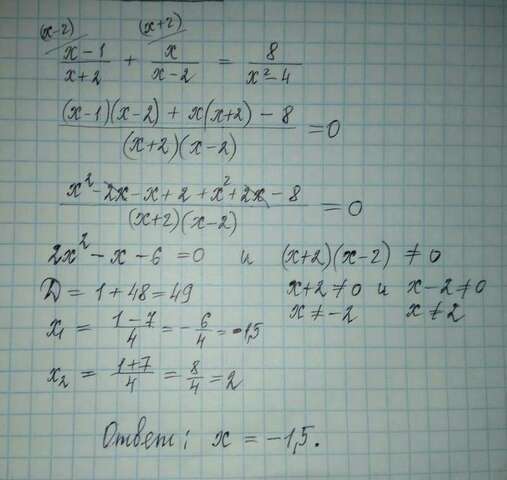 (x-2) (x+2)
(x-1)/(x+2) + x/(x-2) = 8/(x²-4)
((x-1)(x-2) + x(x+2) - 8)/((x+2)(x-2)) = 0
(x² - 2x - x + 2 + x² + 2x - 8)/((x+2)(x-2)) = 0
2x² - x - 6 = 0 и (x+2)(x-2) ≠ 0
D = 1 + 48 = 49 x+2 ≠ 0 и x-2 ≠ 0
x₁ = (1-7)/4 = -6/4 = -1,5 x ≠ -2 x ≠ 2
x₂ = (1+7)/4 = 8/4 = 2
Ответ: x = -1,5.